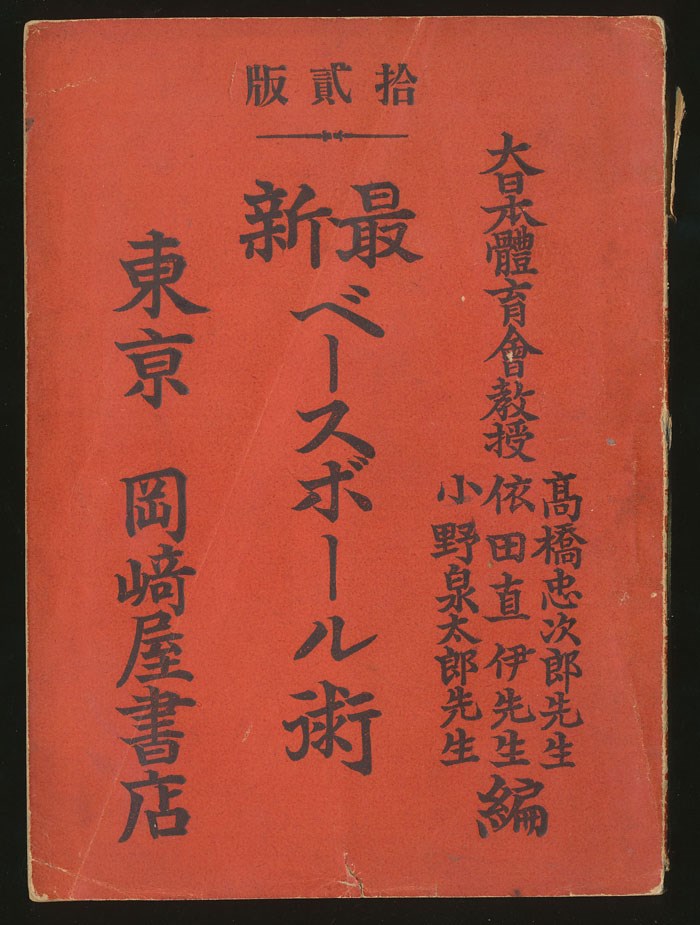 拾貳版
大日本體育會教授
髙橋忠次郎先生
依田直伊先生
小野泉太郎先生
編
最新
ベースボール術
東京 岡﨑屋書店